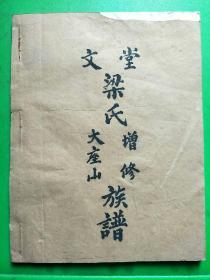 文堂
梁氏增修
大座山
族譜